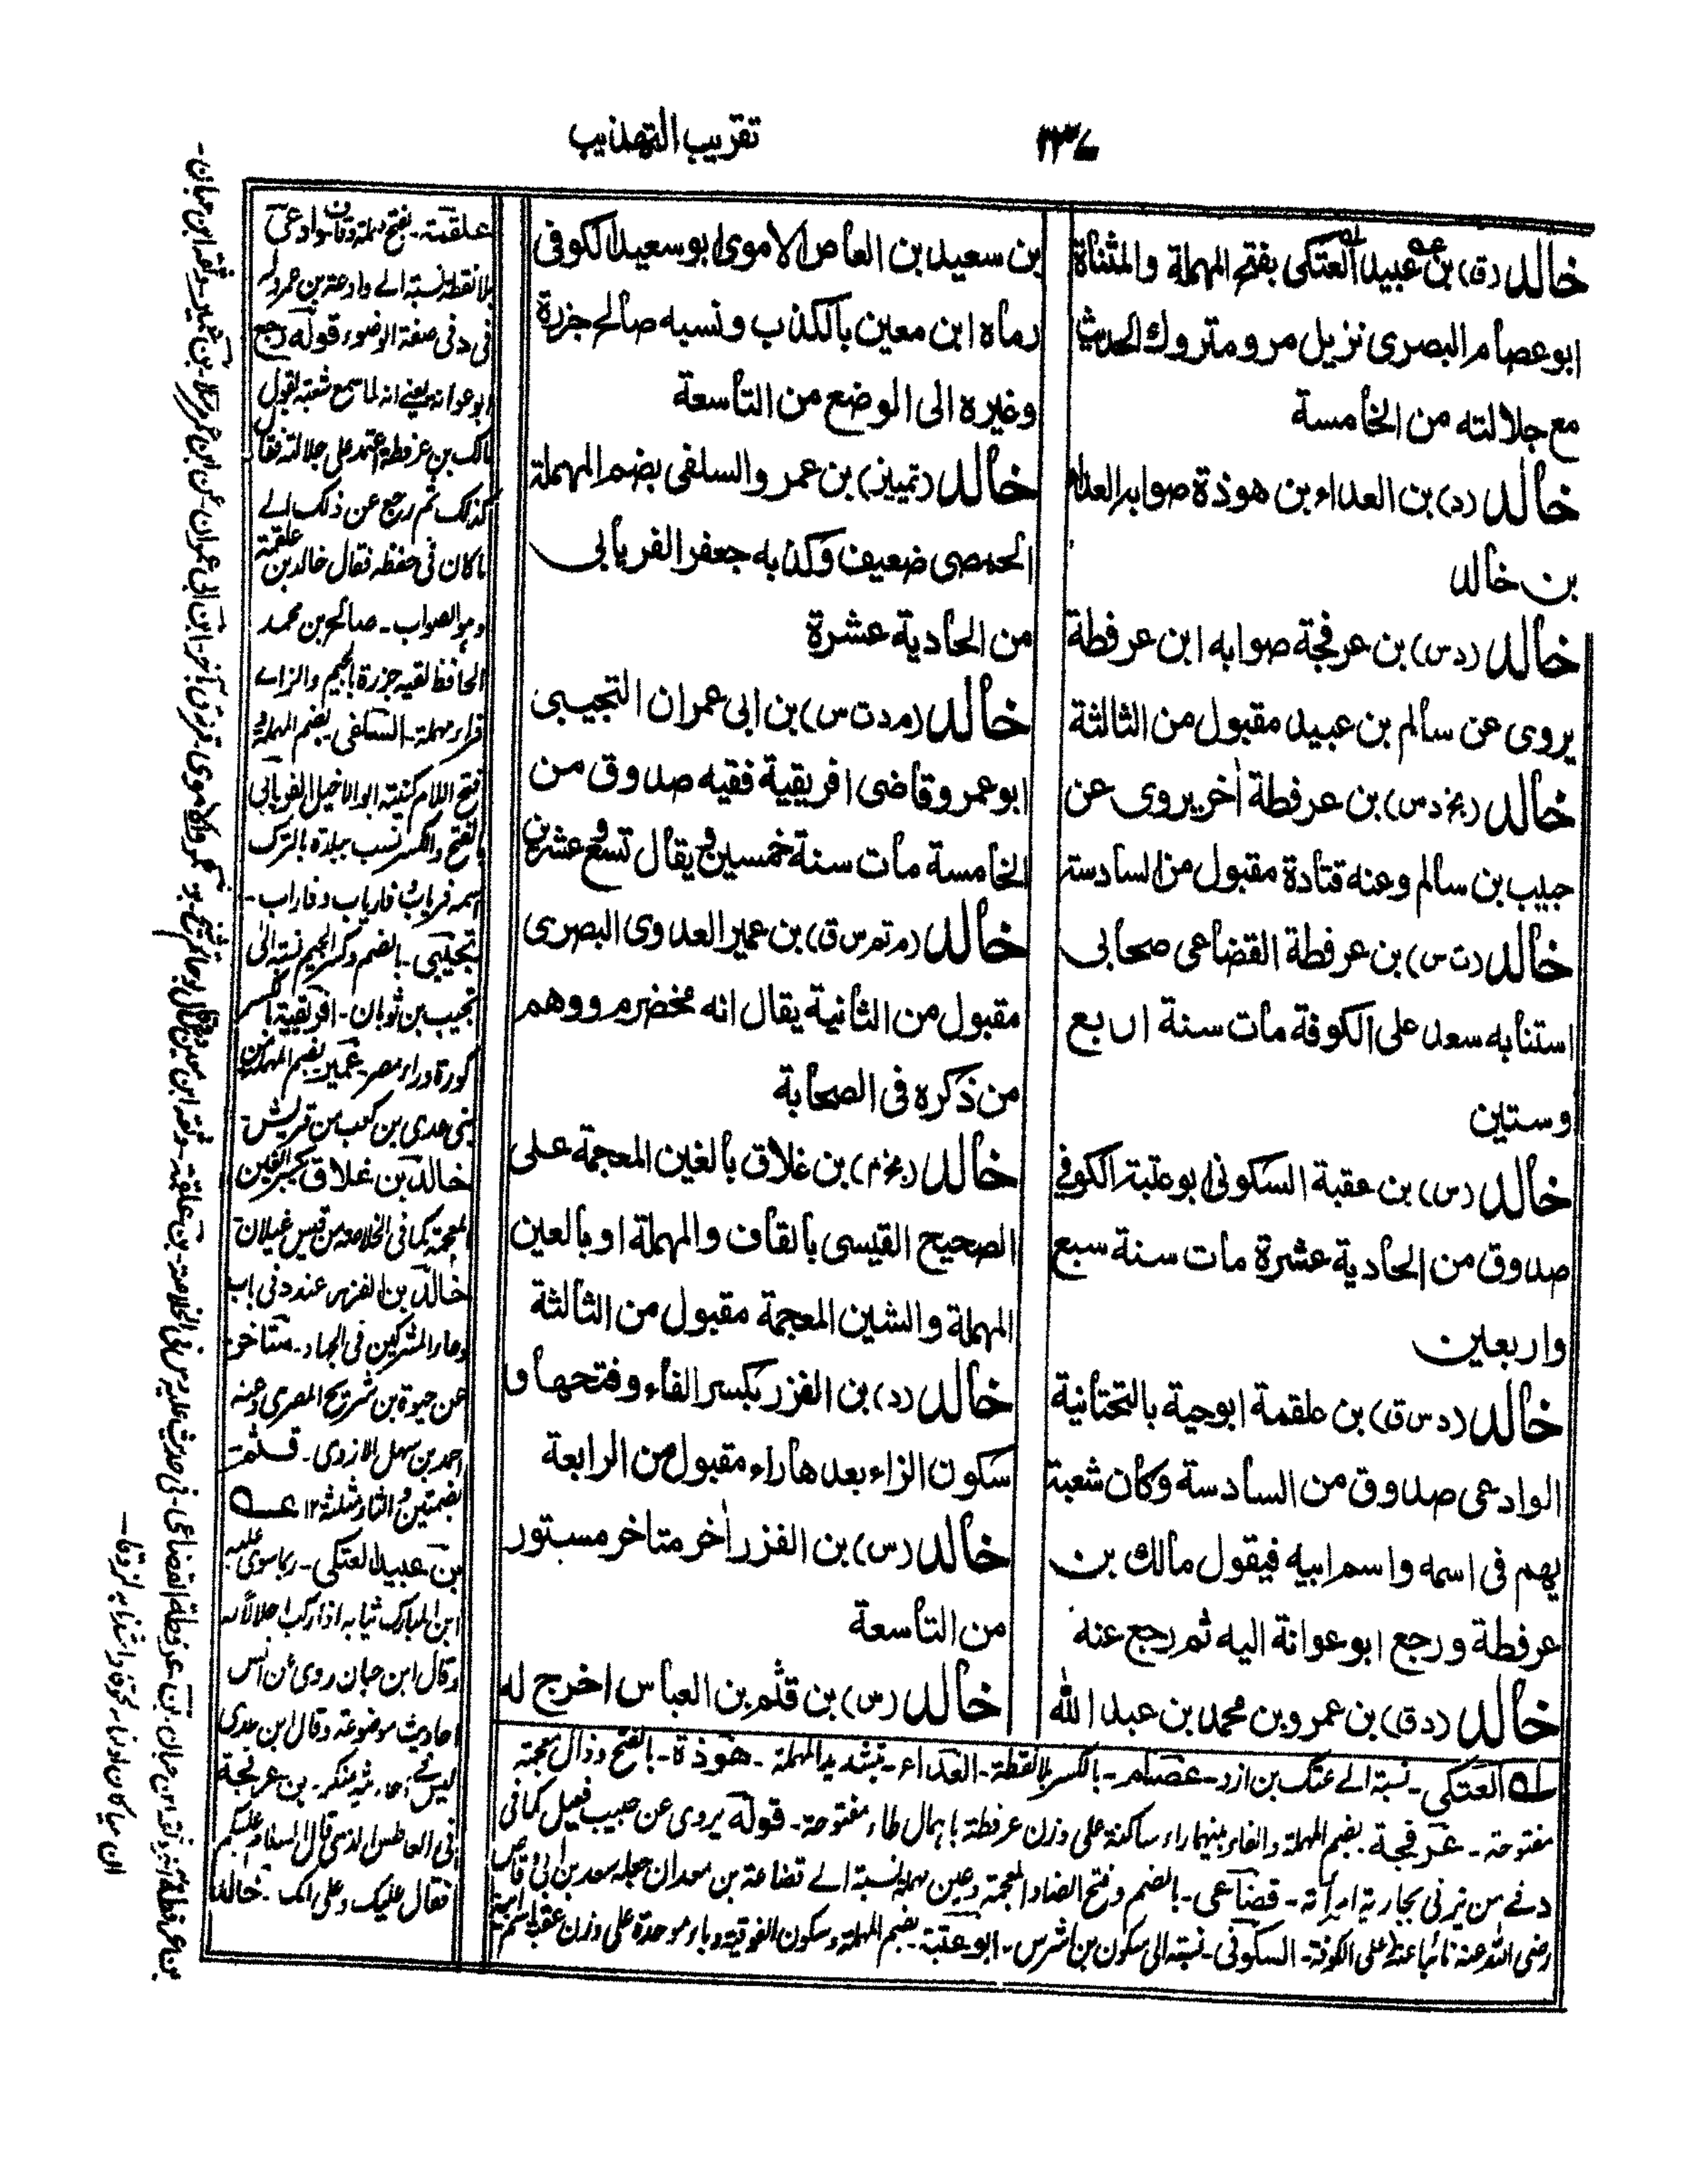 تقريب التهذيب
خالد (ق) بن عبيد العتكى بفتح المهملة والمثناة
ابوعصام البصرى نزيل مرو متروك الحديث
مع جلالته من الخامسة
خالد (د) بن العداء بن هوذة صوابه العداء
بن خالد
خالد (د س) بن عرفجة صوابه ابن عرفطة
يروى عن سالم بن عبيد مقبول من الثالثة
خالد (بخ د س) بن عرفطة أخر يروى عن
حبيب بن سالم وعنه قتادة مقبول من السادسة
خالد (ت س) بن عرفطة القضاعى صحابى
استنابه سعد على الكوفة مات سنة اربع
وستين
خالد (س) بن عقبة السكونى ابوعتبة الكوفى
صدوق من الحادية عشرة مات سنة سبع
واربعين
خالد (د س ق) بن علقمة ابوحية بالتحتانية
الوادعى صدوق من السادسة وكان شعبة
يهم فى اسمه واسم ابيه فيقول مالك بن
عرفطة ورجع ابوعوانة اليه ثم رجع عنه
خالد (د ق) بن عمرو بن محمد بن عبد الله
بن سعيد بن العاص الاموى ابوسعيد الكوفى
رماه ابن معين بالكذب ونسبه صالح جزرة
وغيره الى الوضع من التاسعة
خالد (تمييز) بن عمرو السلفى بضم المهملة
الحمصى ضعيف وكذبه جعفر الفريابى
من الحادية عشرة
خالد (م د ت س) بن ابى عمران التجيبى
ابوعمر وقاضى افريقية فقيه صدوق من
الخامسة مات سنة خمسين ويقال تسع وعشرين
خالد (م تم س ق) بن عمير العدوى البصرى
مقبول من الثانية يقال انه مخضرم ووهم
من ذكره فى الصحابة
خالد (بخ م) بن غلاق بالغين المعجمة على
الصحيح القيسى بالقاف والمهملة او بالعين
المهملة والشين المعجمة مقبول من الثالثة
خالد (د) بن الفزر بكسر الفاء وفتحها و
سكون الزاء بعدها راء مقبول من الرابعة
خالد (س) بن الفزر أخر متاخر مستور
من التاسعة
خالد (س) بن قثم بن العباس اخرج له
العتكى ـ نسبة الے عتك بن ازد ـ عصام ـ بالكسر بلا نقطة ـ العداء ـ بتشديد المهملة ـ هوذة ـ بالفتح وذال معجمة
مفتوحة ـ عرفجة ـ بضم المهملة والفاء بينهما راء ساكنة على وزن عرفطة باهمال طاء مفتوحة ـ قوله يروى عن حبيب فعيل كما فى
قضاعى ـ بالضم وفتح الضاد المعجمة وعين مهملة نسبة الے قضاعة بن معدان جعله سعد بن ابى وقاص
رضى الله عنه نائبا عنه على الكوفة ـ السكونى ـ نسبة الى سكون بن اشرس ـ ابوعتبة ـ بضم المهملة وسكون الفوقية وباء موحدة على وزن عقبة
بلا نقطة نسبة الے وادعة بن عمرو
فى د فى صفة الوضوء قوله رجع
ابوعوانه يعنے انه لما سمع شعبة يقول
مالك بن عرفطة اعتمد على جلالته فقال
كذلك ثم رجع عن ذلك الے
ما كان فى حفظه فقال خالد بن علقمة
وهو الصواب ـ صالح بن محمد
الحافظ لقبه جزرة بالجيم والزاے
فراء مهملة ـ السلفى بضم المهملة و
فتح اللام كنيته ابو الاخيل الفريابى
بالفتح والكسر نسب ببلدة بالترك
اسمه فرياب فارياب وفاراب ـ
تجيبى ـ بالضم وكسر الجيم نسبة الى
تجيب بن ثوبان ـ افريقية بالكسر
كورة وراء مصر ـ عمير بضم المهملة
بنى عدى بن كعب من قريش
خالد بن غلاق بكسر الغين
المعجمة كما فى الخلاصة من قيس غيلان
خالد بن الفزر عند د فى باب
دعاء المشركين فى الجهاد ـ متاخر
عن حيوة بن شريح المصرى وعنه
احمد بن سهل الازدى ـ قثم
بضمتين والثاء مثلثة ١٢
بن عبيد العتكى ـ ربما سوى عليه
ابن المبارك ثيابه اذا ركب اجلالا له
وقال ابن حبان روى عن انس
احاديث موضوعة وقال ابن عدى
ليس فے احاديثه منكر ـ بن عرفجة
فى العاطس الذى قال السلام عليكم
فقال عليك وعلى امك ـ خالد